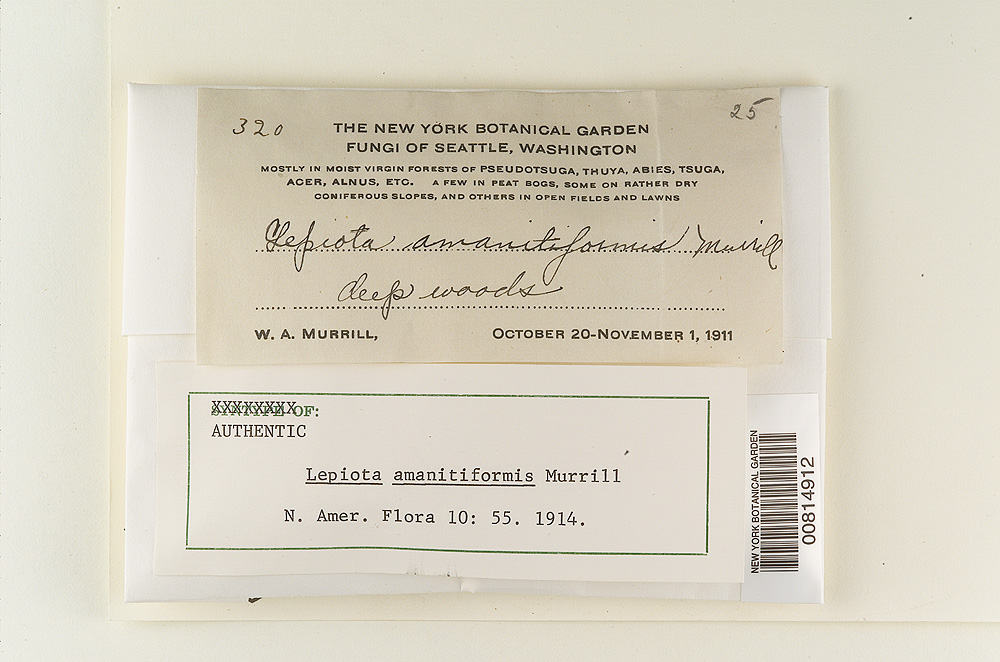 320
25
THE NEW YORK BOTANICAL GARDEN
FUNGI OF SEATTLE, WASHINGTON
MOSTLY IN MOIST VIRGIN FORESTS OF PSEUDOTSUGA, THUYA, ABIES, TSUGA,
ACER, ALNUS, ETC. A FEW IN PEAT BOGS, SOME ON RATHER DRY
CONIFEROUS SLOPES, AND OTHERS IN OPEN FIELDS AND LAWNS
Lepiota amanitiformis Murrill
deep woods
W. A. MURRILL, OCTOBER 20-NOVEMBER 1, 1911
SYNTYPE OF:
AUTHENTIC
Lepiota amanitiformis Murrill
N. Amer. Flora 10: 55. 1914.
NEW YORK BOTANICAL GARDEN
00814912